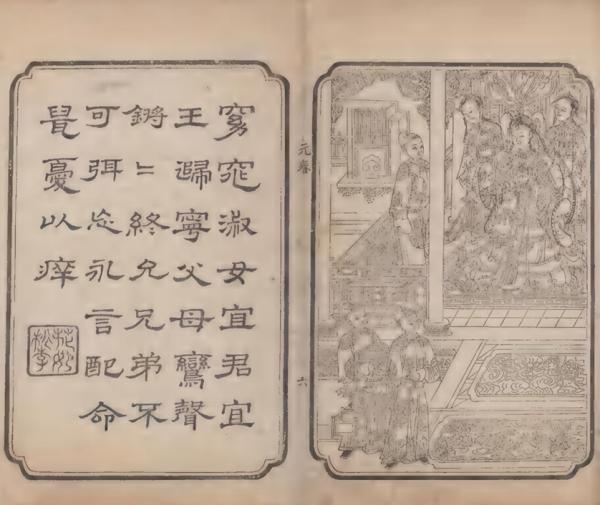 窈窕淑女宜君宜
王歸寧父母鸞聲
鏘二終允兄弟不
可弭忘永言配命
鼠憂以痒
花如
桃李
元春
六